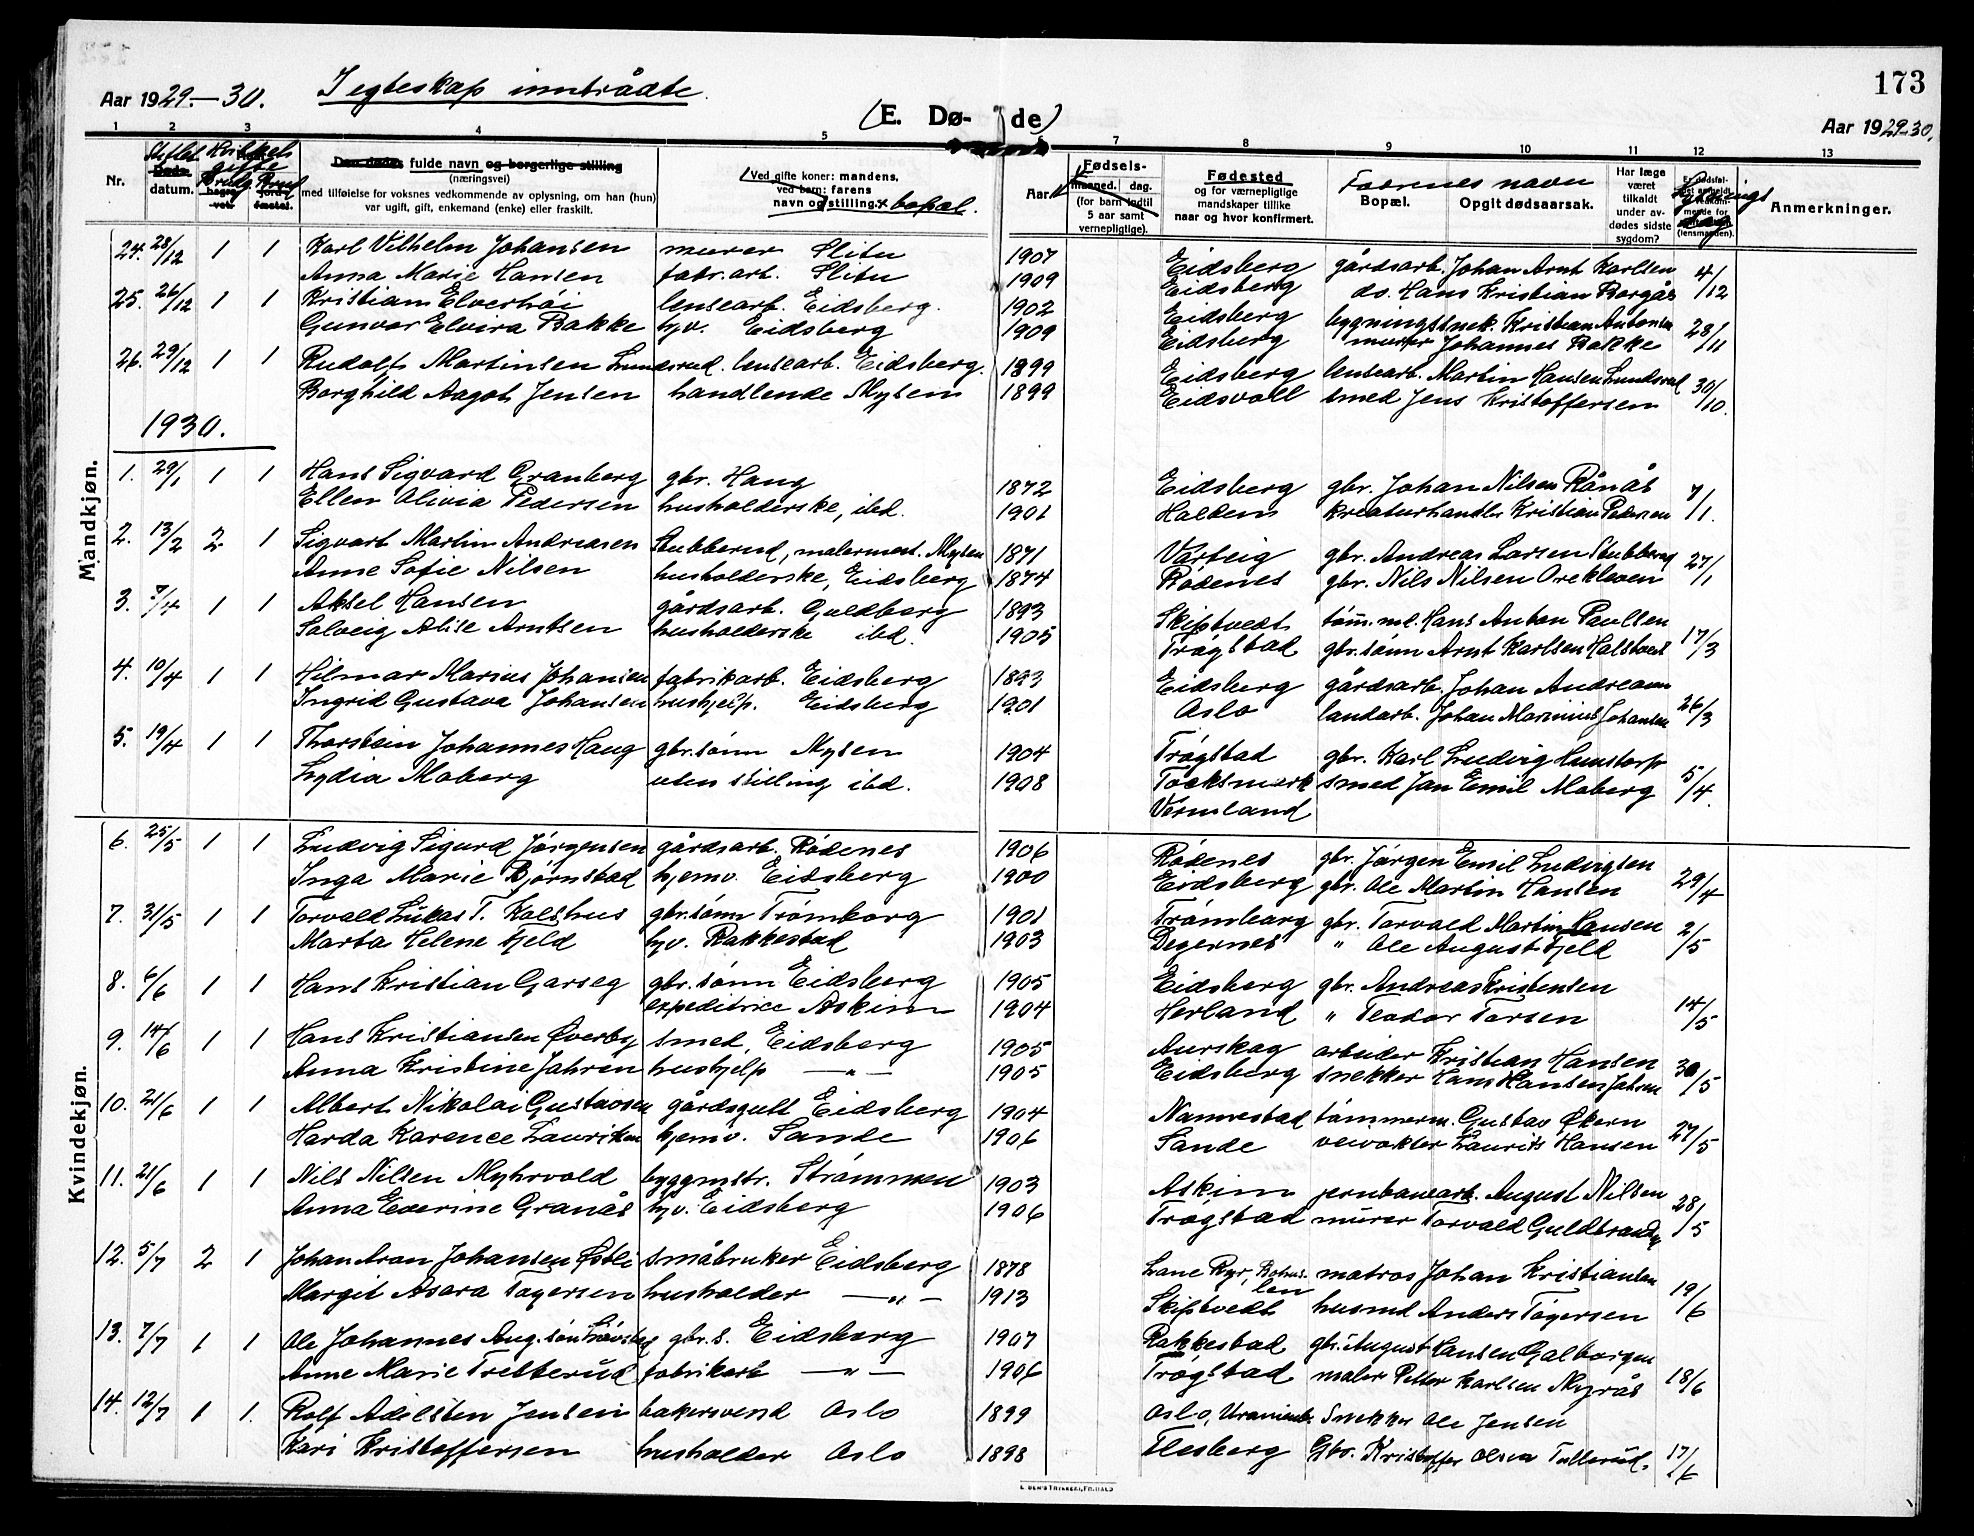 173
Aar 1929.-30. I egteskap inntrådte.
(E. Dø- de)
Aar 1929-30.
1 2 3 4 5 7 8 9 10 11 12 13
Nr. datum. fulde navn og borgerlige stilling (næringsvei) med tilføielse for voksnes vedkommende av oplysning, om han (hun) var ugift, gift, enkemand (enke) eller fraskilt.
Ved gifte koner: mandens, ved barn: farens navn og stilling. x bopæl.
Aar Fødsels- maaned. dag. (for barn indtil 5 aar samt vernepligtige).
Fødested og for værnepligtige mandskaper tillike naar og hvor konfirmert.
Faarenes navn Bopæl. Opgit dødsaarsak.
Har læge været tilkaldt under avdødes sidste sygdom?
Lysnings dag
Anmerkninger.
Mandkjøn.
24. 28/12 1 1 Karl Vilhelm Johansen murer Slitu 1907 Eidsberg gårdsarb. Johan Arnt Karlsen 4/12
Anna Marie Hansen fabr.arb. Slitu 1909 Eidsberg do. Hans Kristian Borgås
25. 26/12 1 1 Kristian Elverhøi lensearb. Eidsberg. 1902 Eidsberg bygningssnek. Kristian Antonsen 28/11
Gunvor Elvira Bakke hjv. Eidsberg 1909 Eidsberg murer Johannes Bakke
26. 29/12 1 1 Rudolf Martinsen Lundsrud. lensearb. Eidsberg. 1899 Eidsberg lensearb. Martin Hansen Lundsrud 30/10.
Borghild Aagot Jensen handlende Mysen 1899 Eidsvoll smed Jens Kristoffersen
1930.
1. 29/1 1 1 Hans Sigvard Granberg gbr. Haug 1872 Eidsberg gbr. Johan Nilsen Rånås 7/1.
Ellen Olivia Pedersen husholderske, ibd. 1901 Halden kreaturhandler Kristian Pedersen
2. 13/2 2 1 Sigvart Martin Andreasen Stubberud, malermest. Mysen 1871 Varteig gbr. Andreas Larsen Stubberud 27/1
Anne Sofie Nilsen husholderske, Eidsberg 1874 Rødenes gbr. Nils Nilsen Orekleven
3. 7/4 1 1 Aksel Hansen gårdsarb. Guldberg 1893 Skiptvedt tøm.ml. Hans Anton Paulsen 17/3
Solveig Alise Arntsen husholderske ibd. 1905 Trøgstad gbr.sønn Arnt Karlsen Halstvedt
4. 10/4 1 1 Hilmar Marius Johansen fabrikarb. Eidsberg 1893 Eidsberg gårdsarb. Johan Andreasen 26/3
Ingrid Gustava Johansen hushjelp. Eidsberg 1901 Oslo landarb. Johan Marinius Johansen
5. 19/4 1 1 Thorstein Johannes Haug gbr.sønn Mysen 1904 Trøgstad gbr. Karl Ludvig Hunstorp 5/4.
Lydia Moberg uten stilling ibd. 1908 Tocksmark smed Jan Emil Moberg
Vermland
Kvindekjøn.
6. 25/5 1 1 Ludvig Sigurd Jørgensen gårdsarb. Rødenes 1906 Rødenes gbr. Jørgen Emil Ludvigsen 29/4
Inga Marie Bjørnstad hjemv. Eidsberg 1900 Eidsberg gbr. Ole Martin Hansen
7. 31/5 1 1 Torvald Lukas T. Kolshus gbr.sønn Trømborg 1901 Trømborg gbr. Torvald Martin Hansen 2/5
Marta Helene Fjeld hjv. Rakkestad 1903 Degernes " Ole August Fjeld
8. 6/6 1 1 Hans Kristian Garseg gbr.sønn Eidsberg 1905 Eidsberg gbr. Andreas Kristensen 14/5
expeditrice Askim 1904 Herland " Teodor Torsen
9. 14/6 1 1 Hans Kristiansen Øverby smed, Eidsberg 1905 Aurskog arbeider Kristian Hansen 30/5
Anna Kristine Jahren hushjelp — " — 1905 Eidsberg snekker Hans Hansen Jahren
10. 21/6 1 1 Albert Nikolai Gustavsen gårdsgutt Eidsberg 1904 Nannestad tømmerm. Gustav Økern 27/5
Harda Karence Lauritsen hjemv. Sande 1906 Sande veivokter Laurits Hansen
11. 21/6 1 1 Nils Nilsen Myhrvold byggmstr. Strømmen 1903 Askim jernbanearb. August Nilsen 28/5
Anna Everine Granås hjv. Eidsberg 1906 Trøgstad murer Torvald Guldbrandsen
12. 5/7 2 1 Johan Aron Johansen Østli småbruker Eidsberg 1878 Lane Ryr, matros Johan Kristiansen 19/6
Margit Asora Tøgersen husholder — " — 1913 Skiptvedt husmd Anders Tøgersen
13. 7/7 1 1 Ole Johannes Aug.søn Løvstad gbr.s. Eidsberg 1907 Rakkestad gbr. August Hansen Galborgen 18/6
Anne Marie Tretterud fabrikarb — " — 1906 Trøgstad maler Petter Karlsen Myrås
14. 12/7 1 1. Rolf Adelsten Jensen bakersvend Oslo 1899 Oslo, Uranienb. Snekker Ole Jensen 17/6
Kari Kristoffersen husholder Oslo 1898 Flesberg Gbr. Kristoffer Olsen Tullerud.